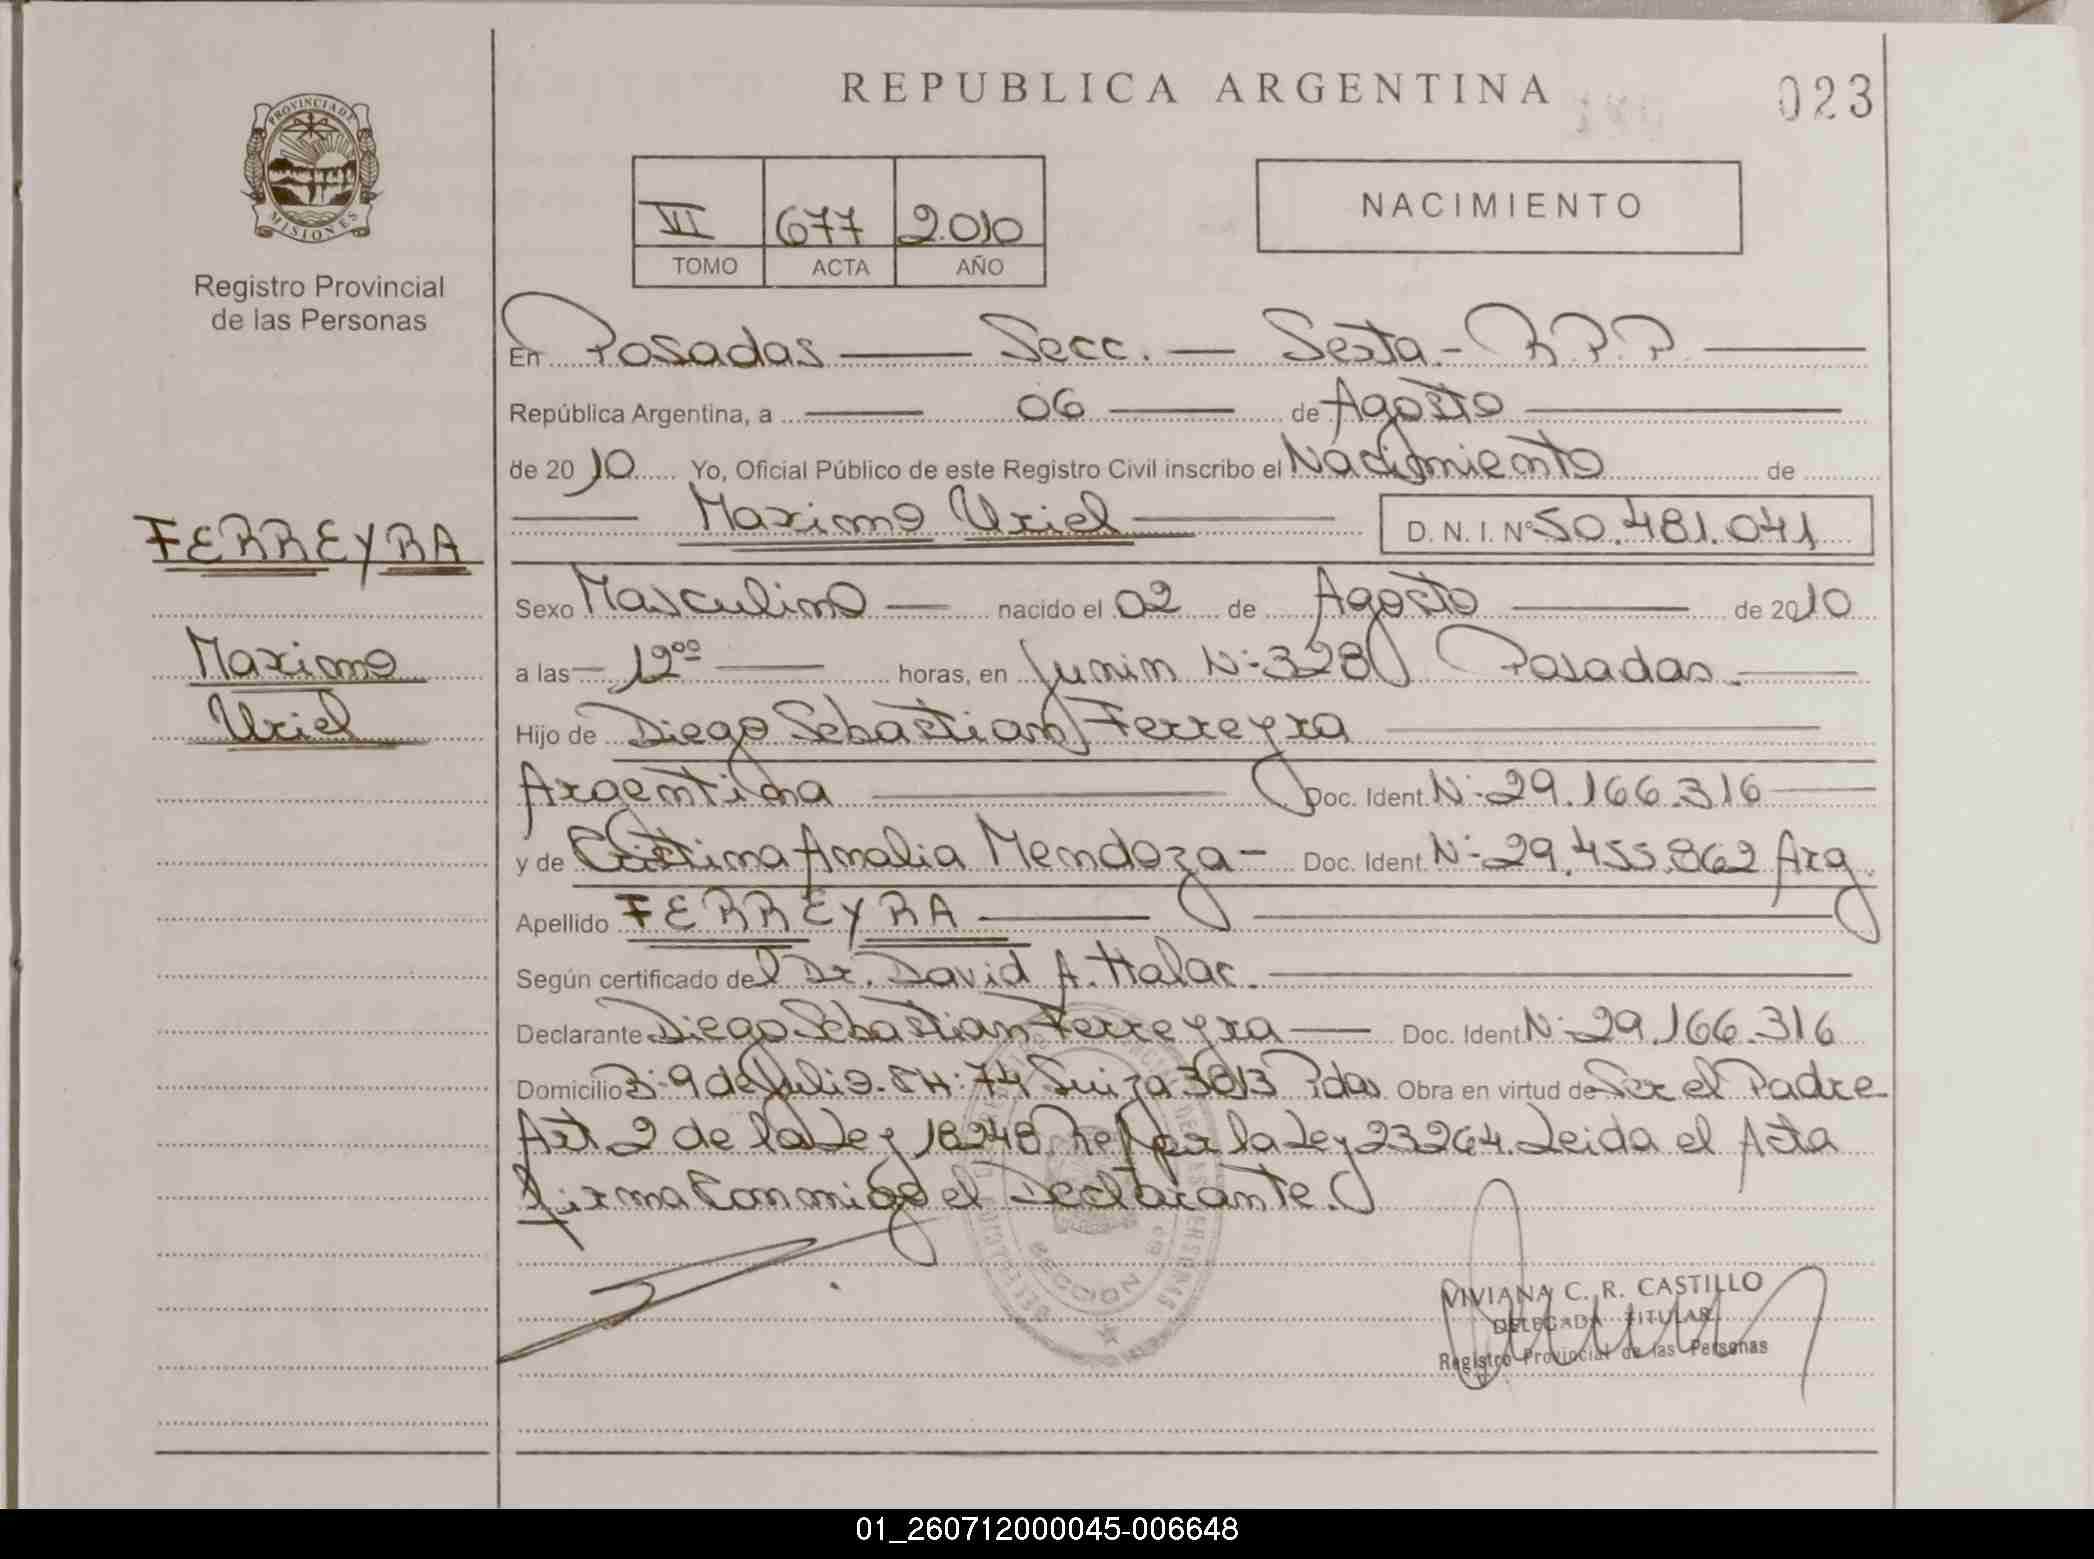 REPUBLICA ARGENTINA
023
PROVINCIA DE
MISIONES
Registro Provincial
de las Personas
VI 677 2.010
TOMO ACTA AÑO
NACIMIENTO
En Posadas — Secc. — Sexta - R.P.P.
República Argentina, a 06 de Agosto
de 2010 Yo, Oficial Público de este Registro Civil inscribo el Nacimiento de
Maximo Uriel D.N.I. Nº 50.481.041
FERREYRA
Maximo
Uriel
Sexo Masculino nacido el 02 de Agosto de 2010
a las 12⁰⁰ horas, en Junin Nº 328 Posadas.
Hijo de Diego Sebastian Ferreyra
Argentina Doc. Ident. Nº 29.166.316
y de Cristina Amalia Mendoza - Doc. Ident. Nº 29.455.862 Arg.
Apellido FERREYRA
Según certificado del Dr. David A. Halac.
Declarante Diego Sebastian Ferreyra Doc. Ident. Nº 29.166.316
Domicilio Bº 9 de Julio. 74 Suiza 3813 Pdas Obra en virtud de Ser el Padre
Art. 2 de la Ley 18248 Ref por la Ley 23264. Leida el Acta
firma Conmigo el Declarante.
SECCION
VIVIANA C. R. CASTILLO
DELEGADA TITULAR
Registro Provincial de las Personas
01_260712000045-006648